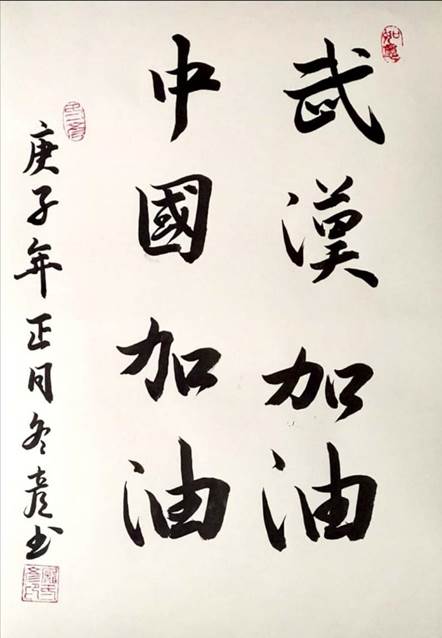 武漢加油
中國加油
庚子年正月冬彦书